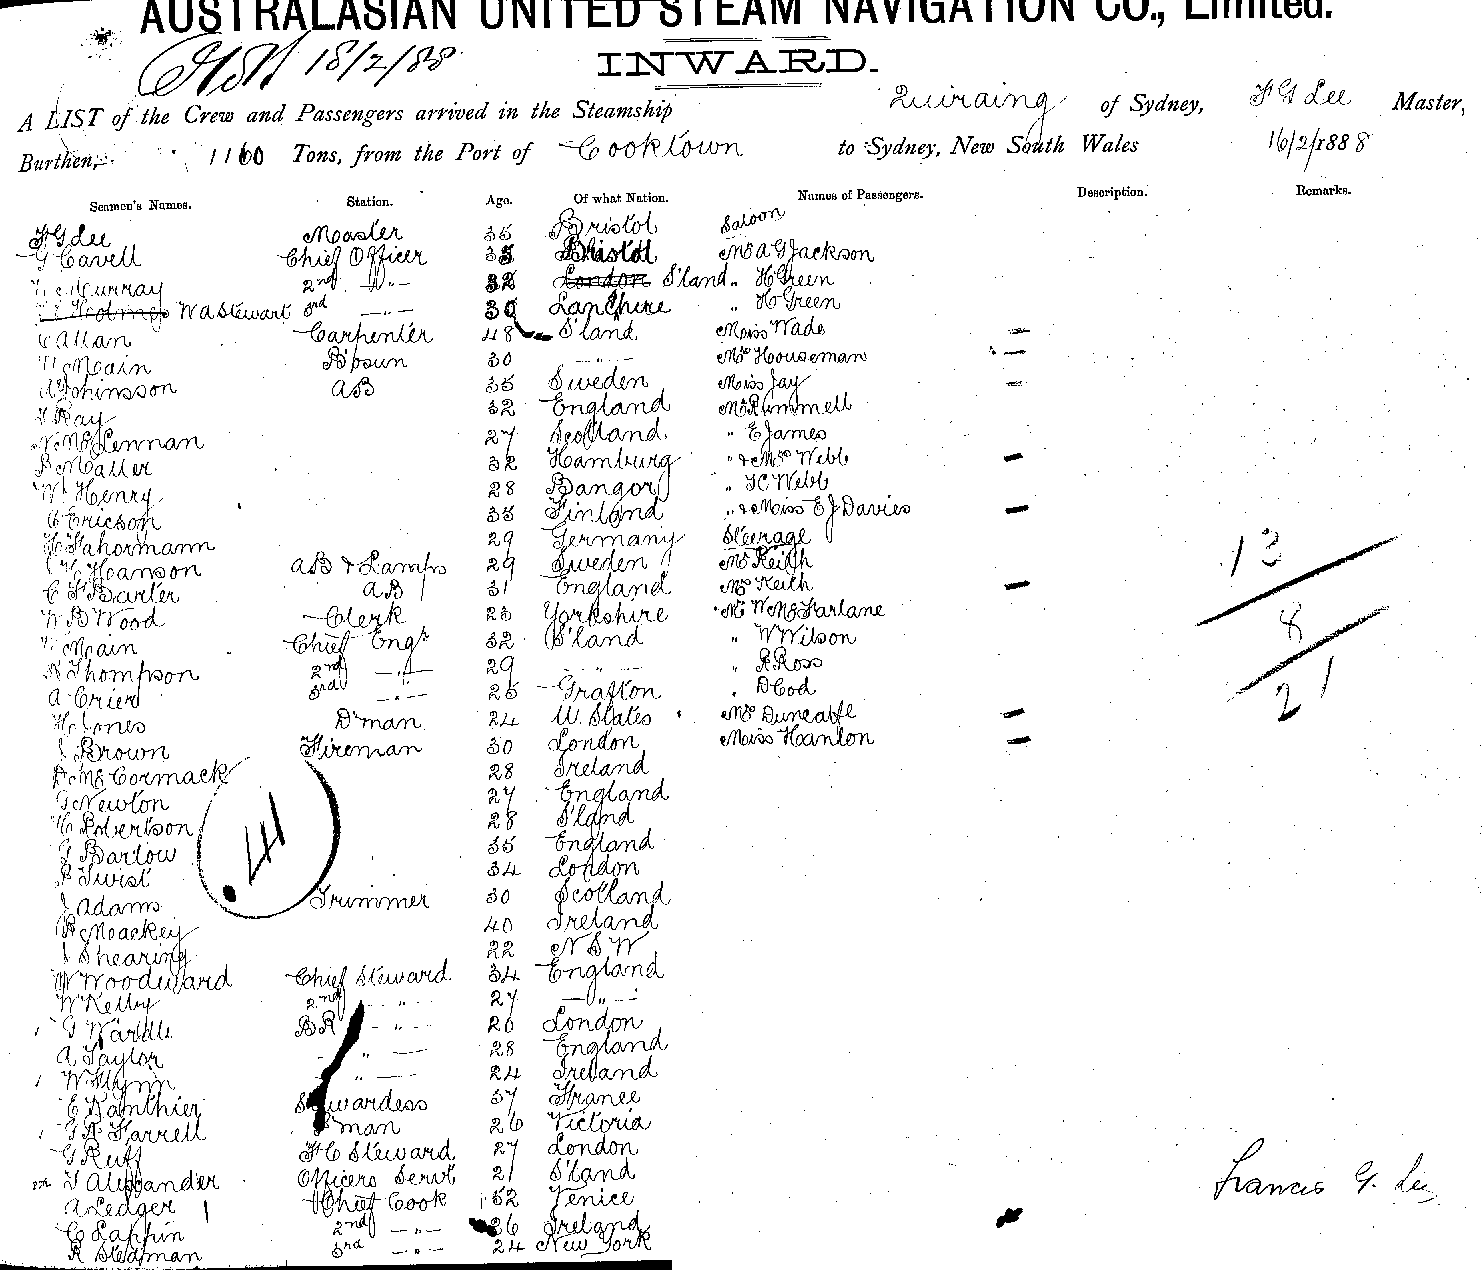 AUSTRALASIAN UNITED STEAM NAVIGATION CO., Limited.
18/2/88
INWARD.
A LIST of the Crew and Passengers arrived in the Steamship Quiraing of Sydney, F G Lee Master,
Burthen, 1160 Tons, from the Port of Cooktown to Sydney, New South Wales 16/2/1888
Seamen's Names. Station. Age. Of what Nation. Names of Passengers. Description. Remarks.
F G Lee Master 35 Bristol Saloon
G Cavell Chief Officer 35 Bristol Mr A G Jackson
Murray 2nd " 32 London S'land " H Green
Holmes W A Stewart 3rd " 30 Lanc'hire " H Green
C Allan Carpenter 48 S'land Miss Wade
Main B'osun 30 " Mrs Houseman
A Johinsson AB 35 Sweden Miss Jay
F Ray 32 England Mr Rummell
N McLennan 27 Scotland " E James
B Matter 32 Hamburg " & Mrs Webb
W Henry 28 Bangor " T C Webb
C Ericson 33 Finland " & Miss E J Davies
H Fahormann 29 Germany Steerage
C Hoanson AB & Lamps 29 Sweden Mr Keith
C F Barter AB 31 England Mrs Keith
W B Wood Clerk 23 Yorkshire Mr W McFarlane
Main Chief Engr 32 S'land " W Wilson
A Thompson 2nd " 29 " " R Ross
A Crier 3rd " 25 Grafton " D Cod
H Jones D'man 24 U. States Mr Duncalfe
J Brown Fireman 30 London Miss Hanlon
D McCormack 28 Ireland
G Newton 27 England
H Robertson 28 S'land
G Barlow 35 England
P Twist 34 London
J Adams Trimmer 30 Scotland
R Mackey 40 Ireland
J Shearing 22 N S W
W Woodward Chief Steward 34 England
W Kelly 2nd " 27 "
G Wardle B R " 26 London
A Taylor " 28 England
W Flynn " 24 Ireland
E Danthier Stewardess 37 France
G A Farrell P'man 26 Victoria
G Ruff F C Steward 27 London
F Alexander Officers Servt 21 S'land
A Ledger Chief Cook 52 Venice
C Lappin 2nd " 26 Ireland
R Stedman 3rd " 24 New York
41
13
8
21
Francis G. Lee